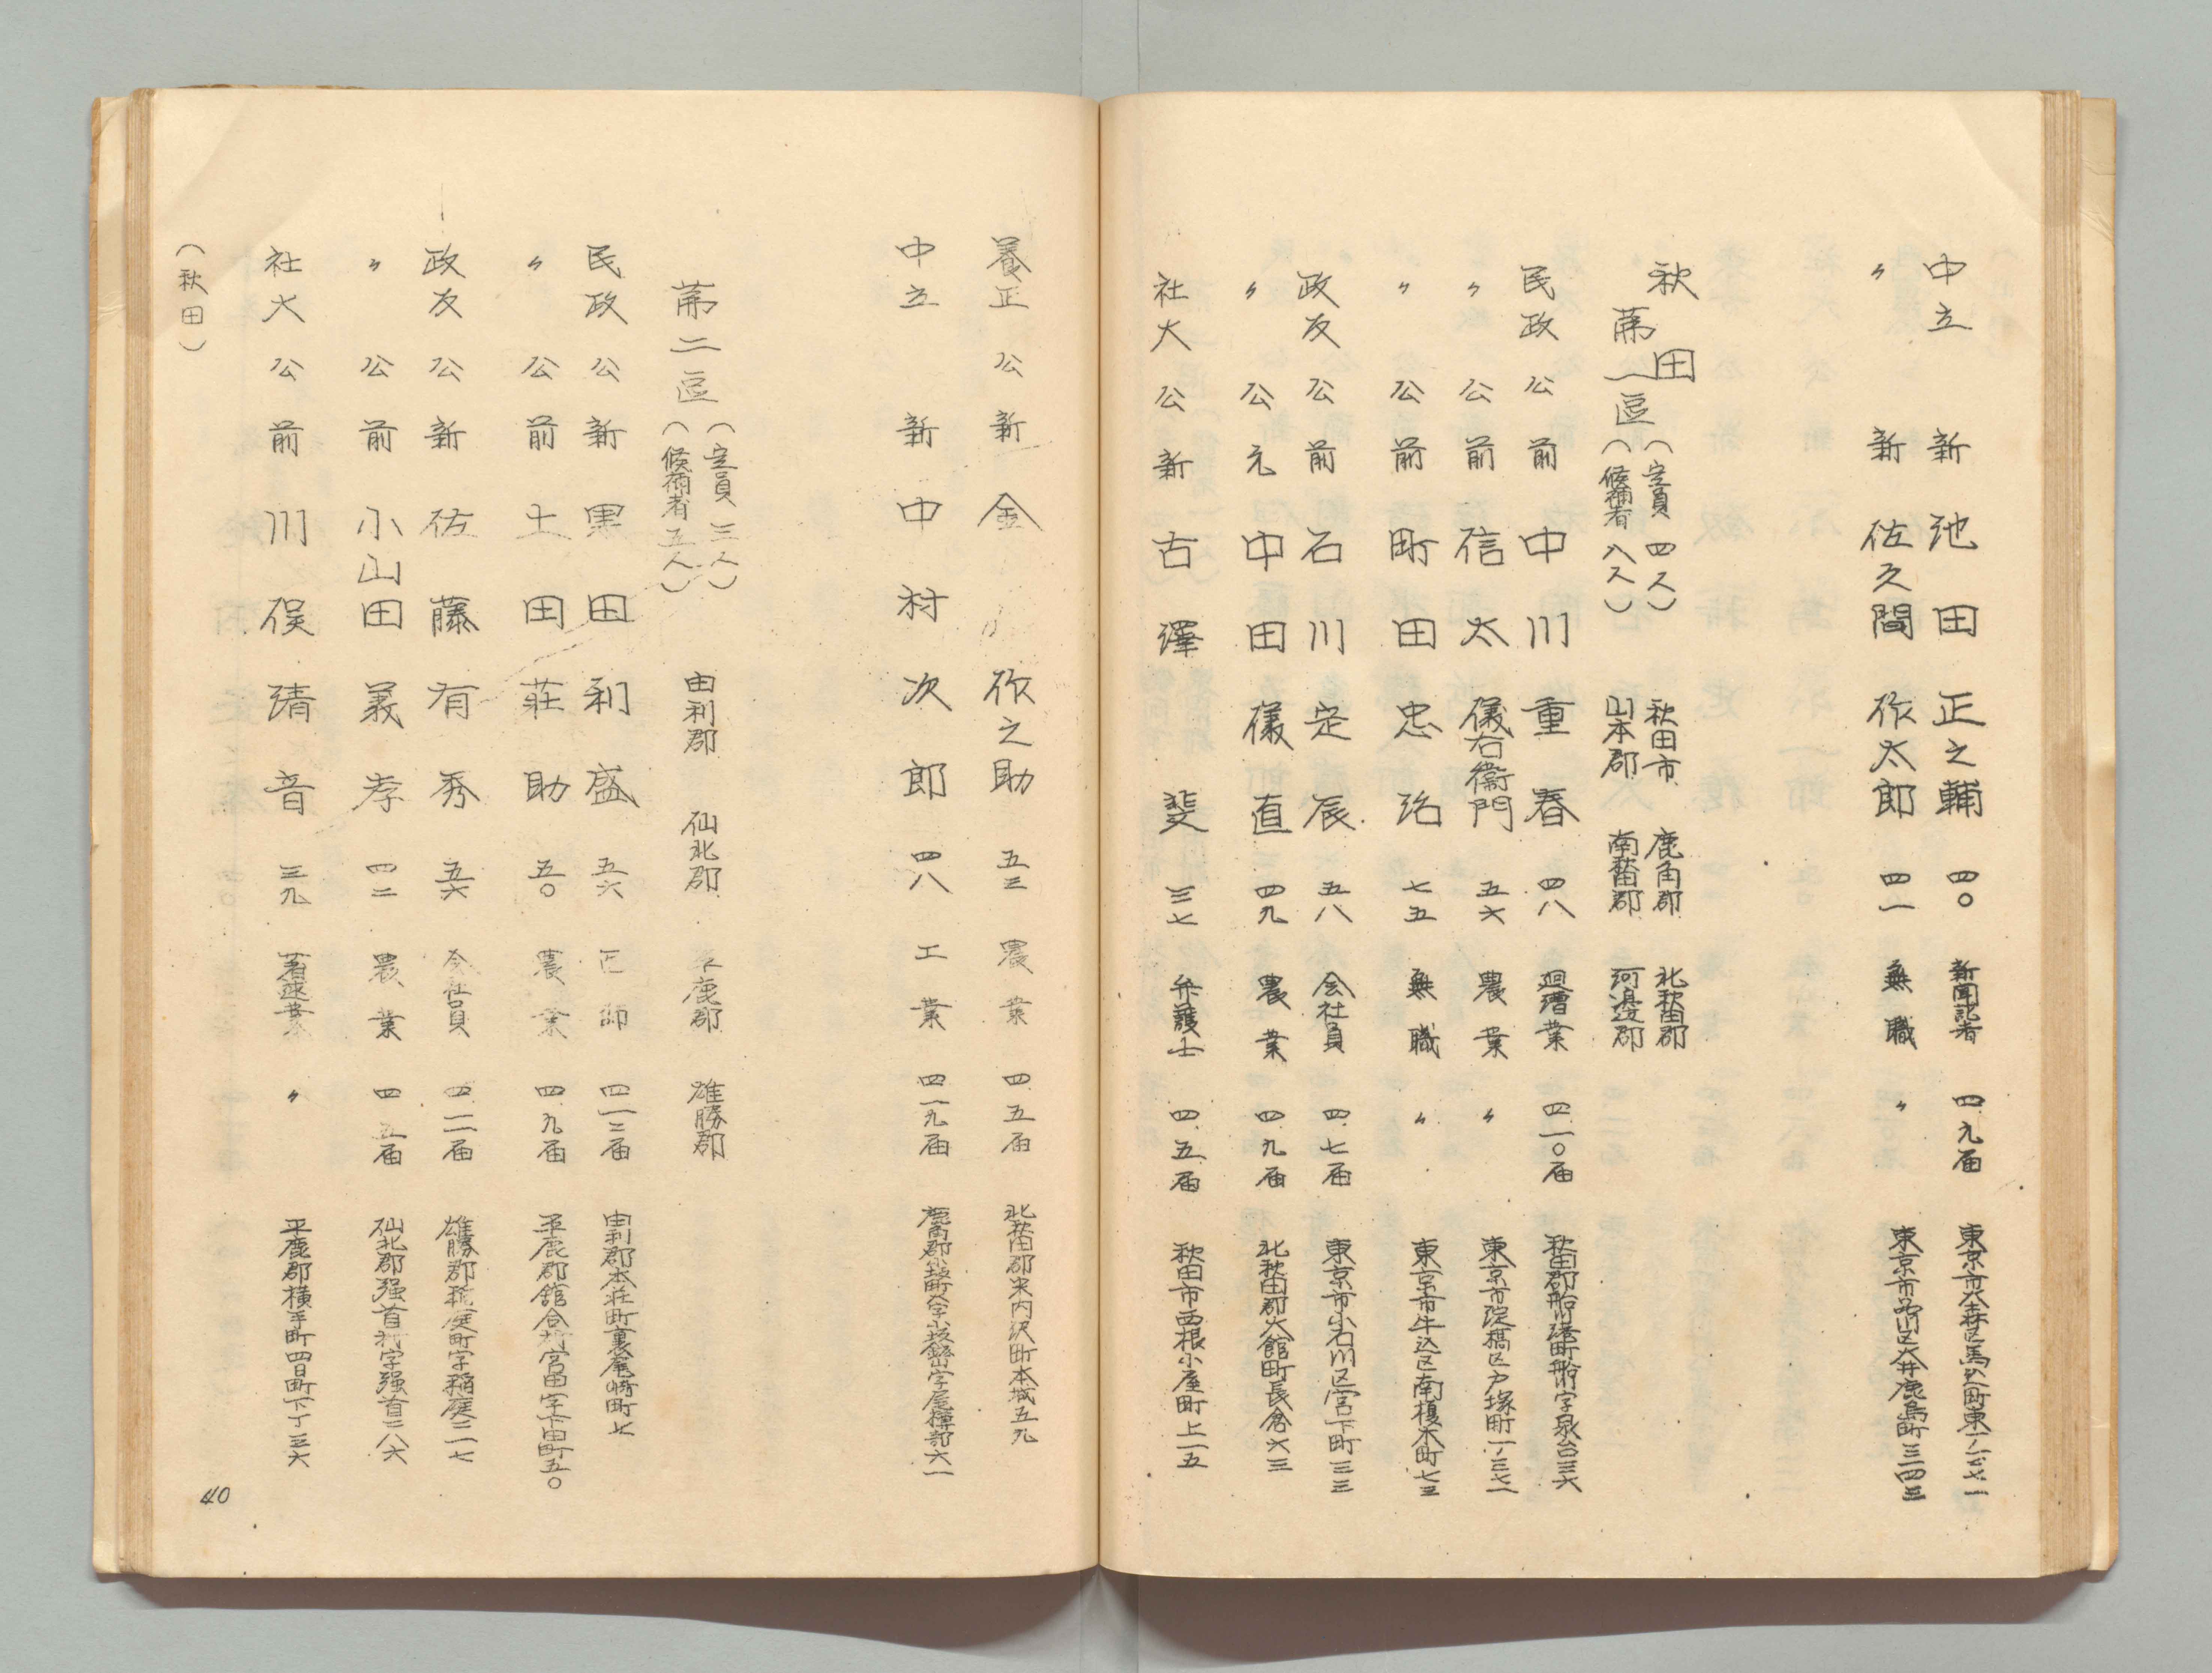 中立 新 池田正之輔 四〇 新聞記者 四.九届 東京市大森区馬込町東一ノ二七一
〃 新 佐久間作太郎 四一 無職 〃 東京市品川区大井鹿島町三一四三
秋田
第一區(定員 四人)(候補者 八人)
秋田市 鹿角郡 北秋田郡
山本郡 南秋田郡 河邊郡
民政 公 前 中川重春 四八 廻漕業 四.一〇届 秋田郡船川港町船川字泉台三六
〃 公 前 信太儀右衛門 五六 農業 〃 東京市淀橋区戸塚町一ノ三七一
〃 公 前 町田忠治 七五 無職 〃 東京市牛込区南榎木町七三
政友 公 前 石川定辰 五八 会社員 四.七届 東京市小石川区宮下町三三
〃 公 元 中田儀直 四九 農業 四.九届 北秋田郡大館町長倉六三
社大 公 新 古澤斐 三七 弁護士 四.五届 秋田市西根小屋町上一五
養正 公 新 金作之助 五三 農業 四.五届 北秋田郡米内沢町本城五九
中立 新 中村次郎 四八 工業 四一九届 鹿角郡小坂町大字小坂鑛山字尾樽部六一
第二區(定員 三人)(候補者 五人)
由利郡 仙北郡 平鹿郡 雄勝郡
民政 公 新 黒田利盛 五六 医師 四一二届 由利郡本荘町裏尾崎町七
〃 公 前 土田莊助 五〇 農業 四.九届 平鹿郡館合村宮田字下田町五〇
政友 公 新 佐藤有秀 五六 会社員 四.一一届 雄勝郡稲庭町字稲庭二一七
〃 公 前 小山田義孝 四二 農業 四.五届 仙北郡强首村字强首二八六
社大 公 前 川俣清音 三九 著述業 〃 平鹿郡横手町四日町下丁三六
(秋田)
40